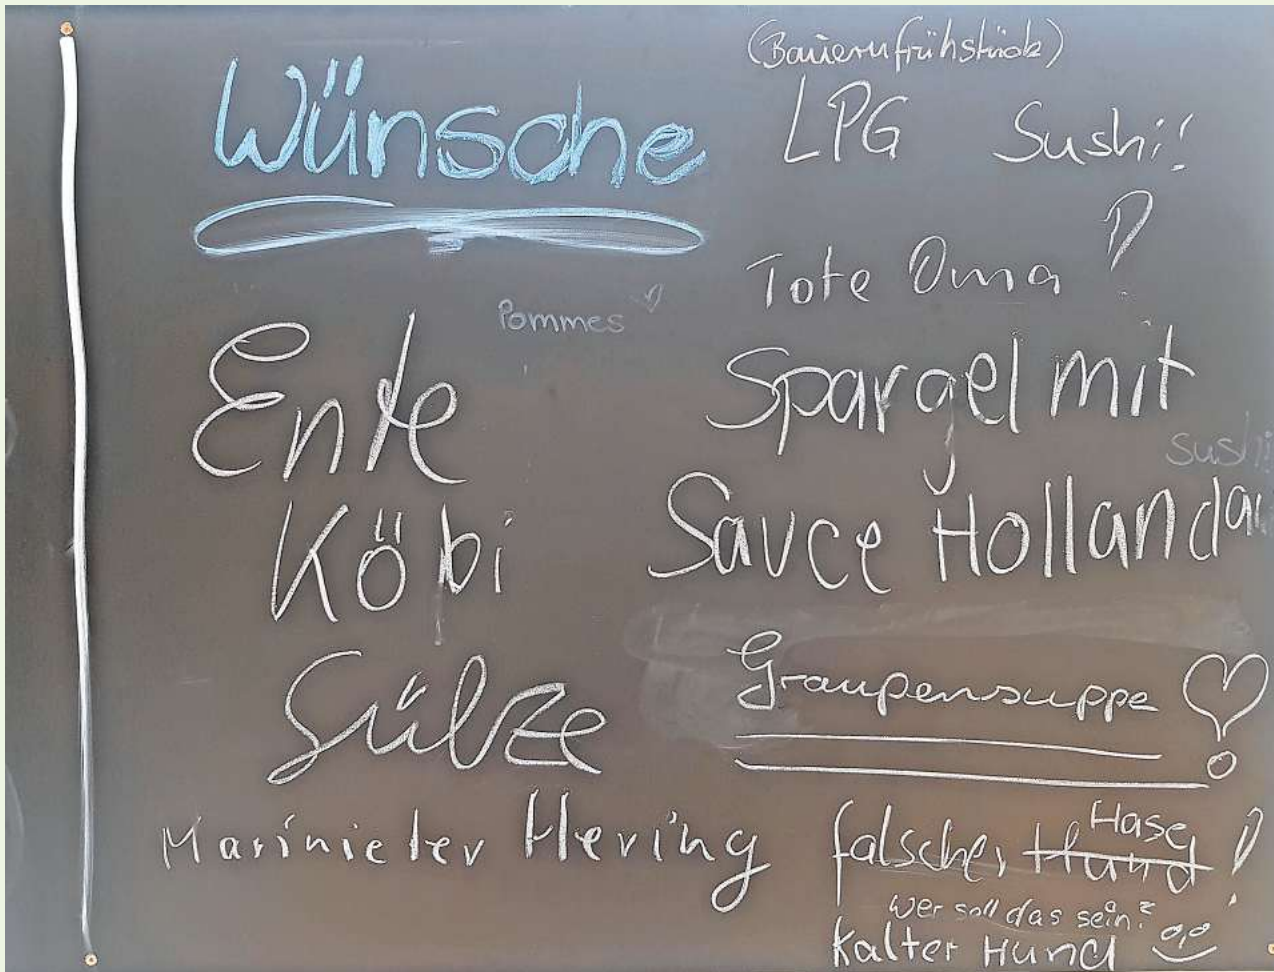 Wünsche
(Bauernfrühstück)
LPG Sushi!
Tote Oma !
Pommes
Ente
Spargel mit
Sushi
Köbi
Sauce Hollandai
Sülze
Graupensuppe !
Marinieter Hering
falscher Hund Hase !
Wer soll das sein?
Kalter Hund